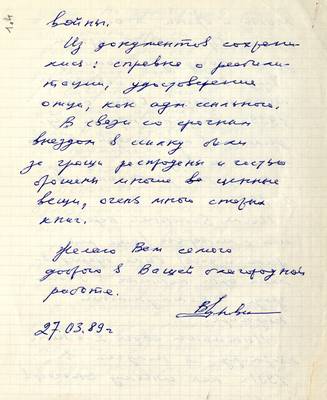 войны.
Из документов сохрани-
лись: справка о реабили-
тации, удостоверение
отца, как адм ссыльного.
В связи со срочным
выездом в ссылку были
за гроши распроданы и частью
брошены многие ценные
вещи, очень много старых
книг.
Желаю Вам самого
доброго в Вашей благородной
работе.
27.03.89г